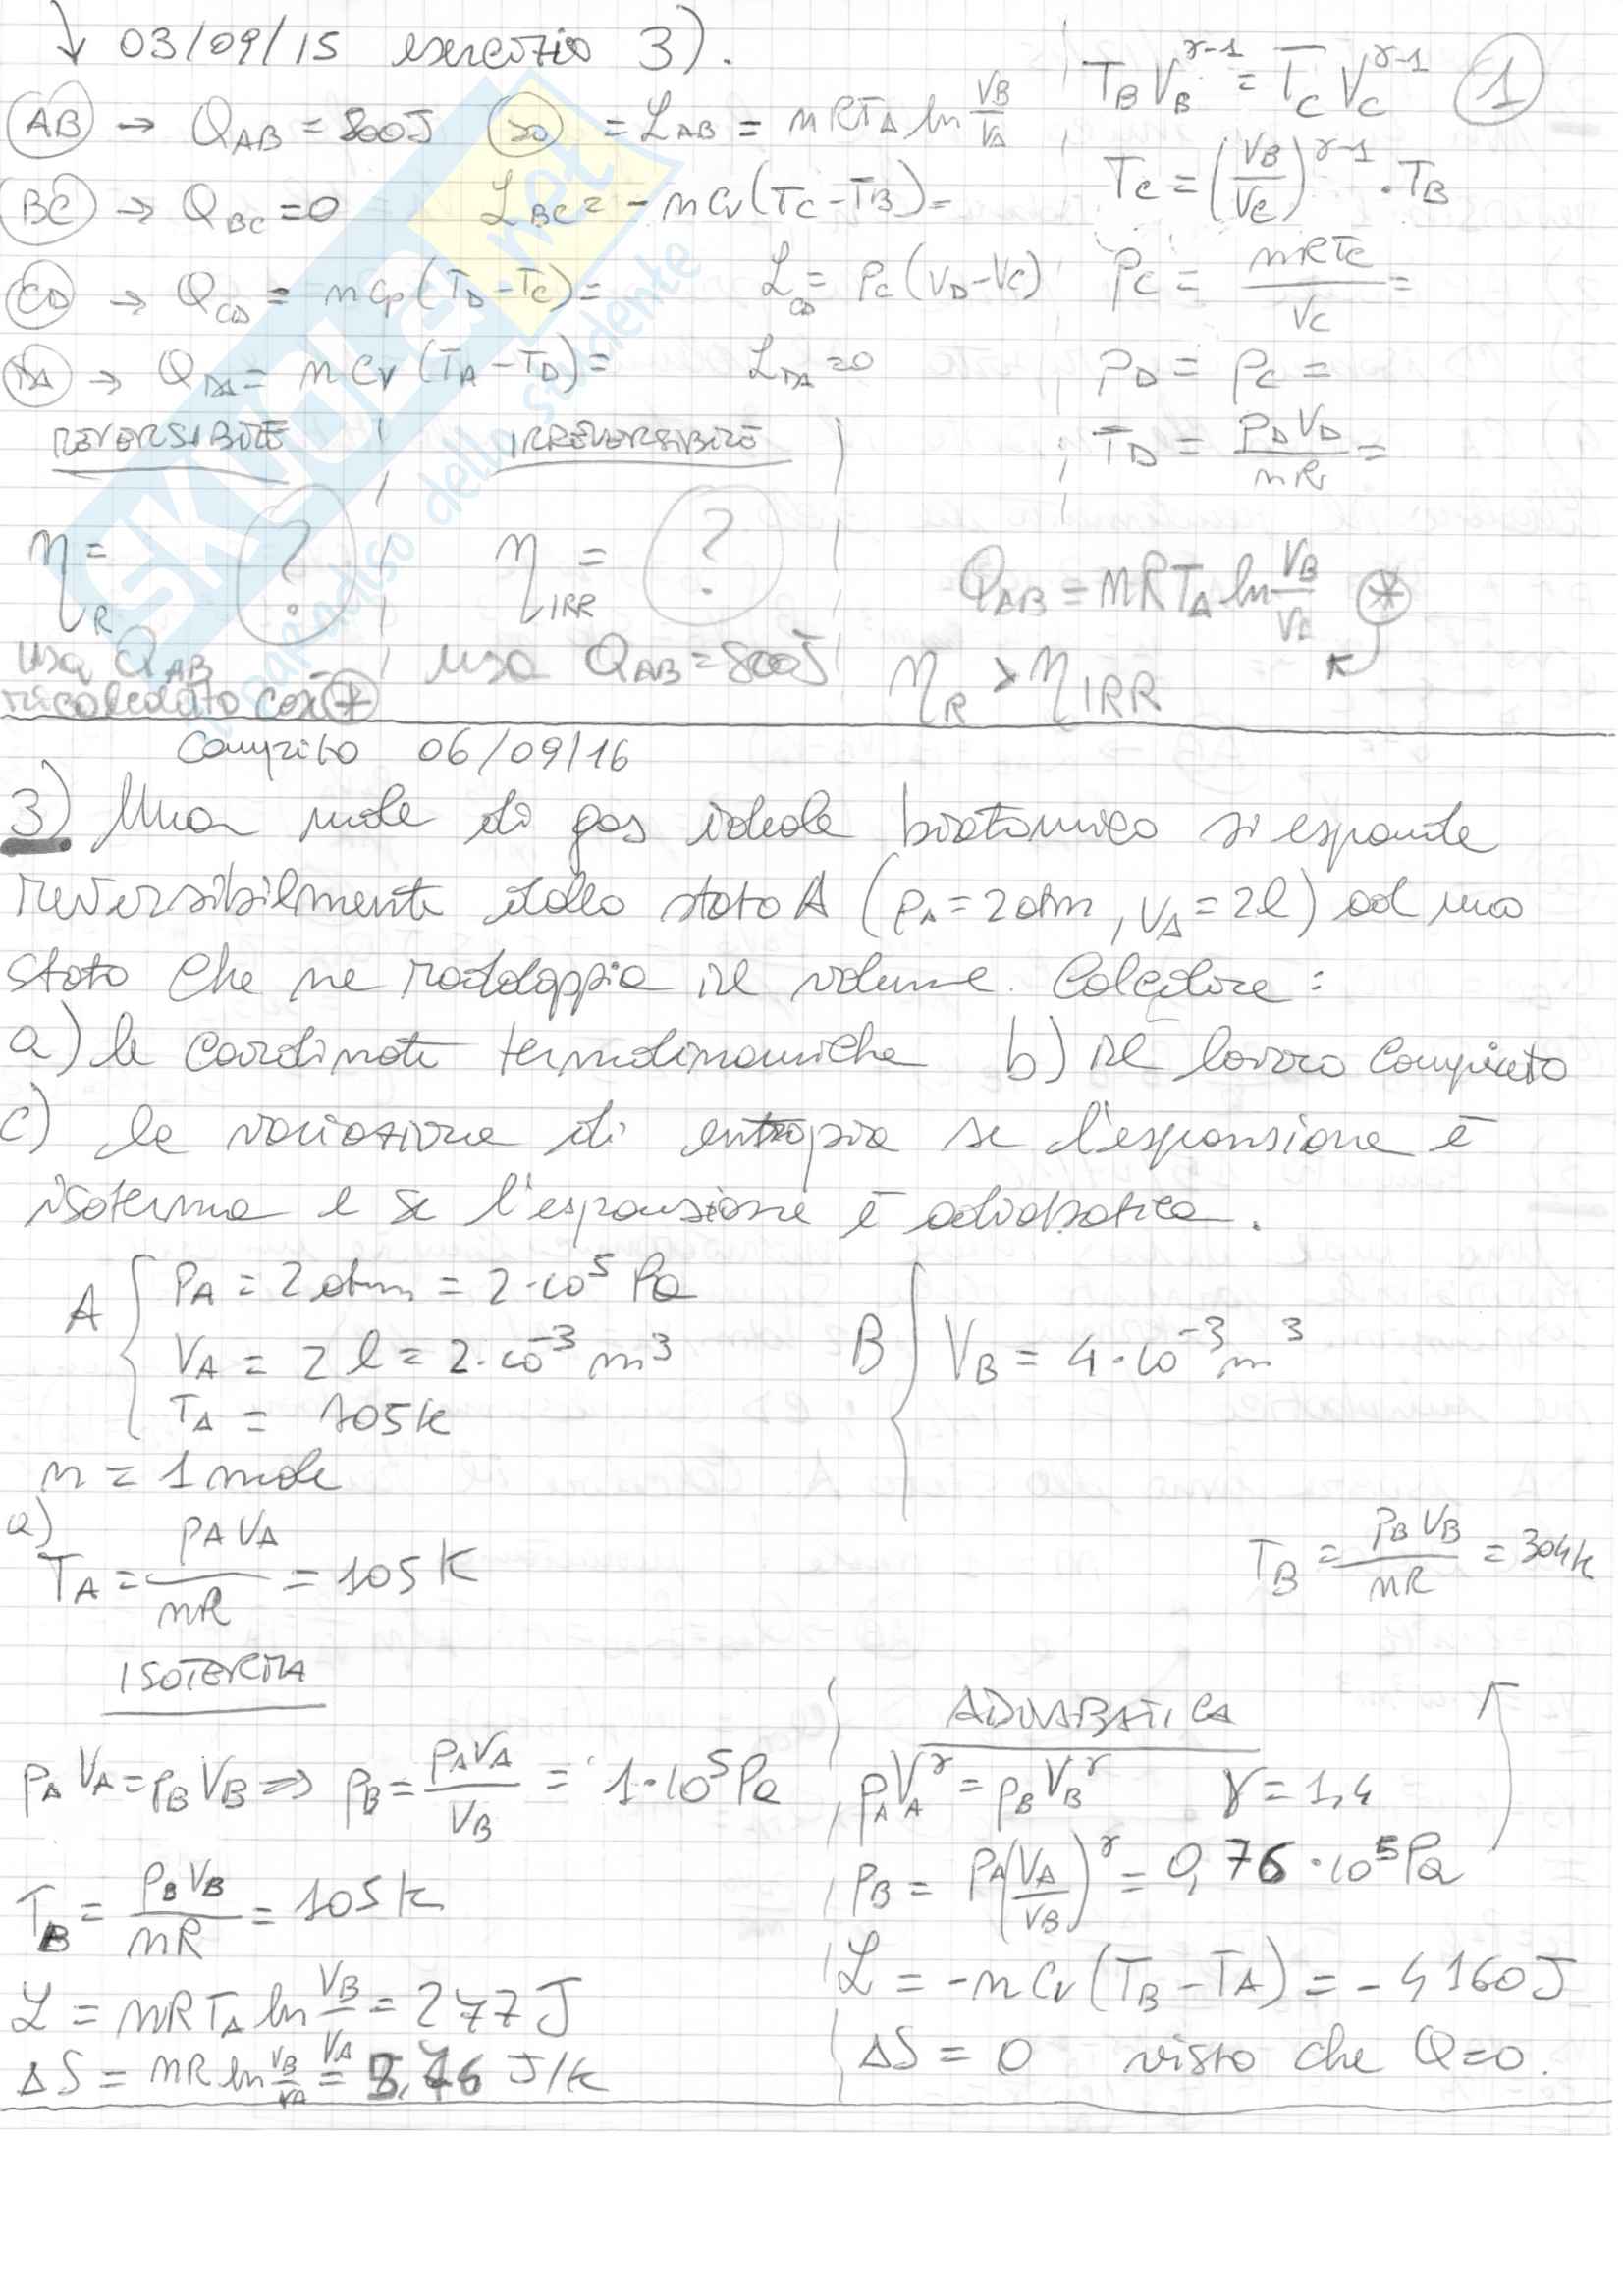 ↓ 03/09/15 esercizio 3).
(AB) → Q_AB = 800J (>0) = L_AB = nRT_A ln V_B/V_A
(BC) → Q_BC = 0 L_BC = - n c_v (T_C - T_B) =
(CD) → Q_CD = n c_p (T_D - T_C) = L_CD = p_C (V_D - V_C)
(DA) → Q_DA = n c_v (T_A - T_D) = L_DA = 0
T_B V_B^γ-1 = T_C V_C^γ-1 (1)
T_C = (V_B/V_C)^γ-1 · T_B
p_C = nRT_C/V_C =
p_D = p_C =
T_D = p_D V_D/nR =
REVERSIBILE IRREVERSIBILE
η_R = ? η_IRR = ? Q_AB = nRT_A ln V_B/V_A (*)
usa Q_AB ricalcolato con (*) usa Q_AB = 800J η_R > η_IRR
Compito 06/09/16
3) Una mole di gas ideale biatomico si espande
reversibilmente dallo stato A (p_A = 2 atm, V_A = 2l) ad uno
stato che ne raddoppia il volume. Calcolare:
a) le coordinate termodinamiche b) il lavoro compiuto
c) la variazione di entropia se l'espansione è
isoterma e se l'espansione è adiabatica.
A { p_A = 2 atm = 2·10^5 Pa
V_A = 2 l = 2·10^-3 m^3
T_A = 105K
B { V_B = 4·10^-3 m^3
n = 1 mole
a)
T_A = p_A V_A/nR = 105 K
T_B = p_B V_B/nR = 304K
ISOTERMA
p_A V_A = p_B V_B => p_B = p_A V_A/V_B = 1·10^5 Pa
T_B = p_B V_B/nR = 105K
L = nRT_A ln V_B/V_A = 277 J
ΔS = nR ln V_B/V_A = J/K
ADIABATICA
p_A V_A^γ = p_B V_B^γ γ = 1,4
p_B = p_A (V_A/V_B)^γ = 0,76·10^5 Pa
L = - n c_v (T_B - T_A) = - 4160J
ΔS = 0 visto che Q=0.
SKUOLA.net
il paradiso dello studente